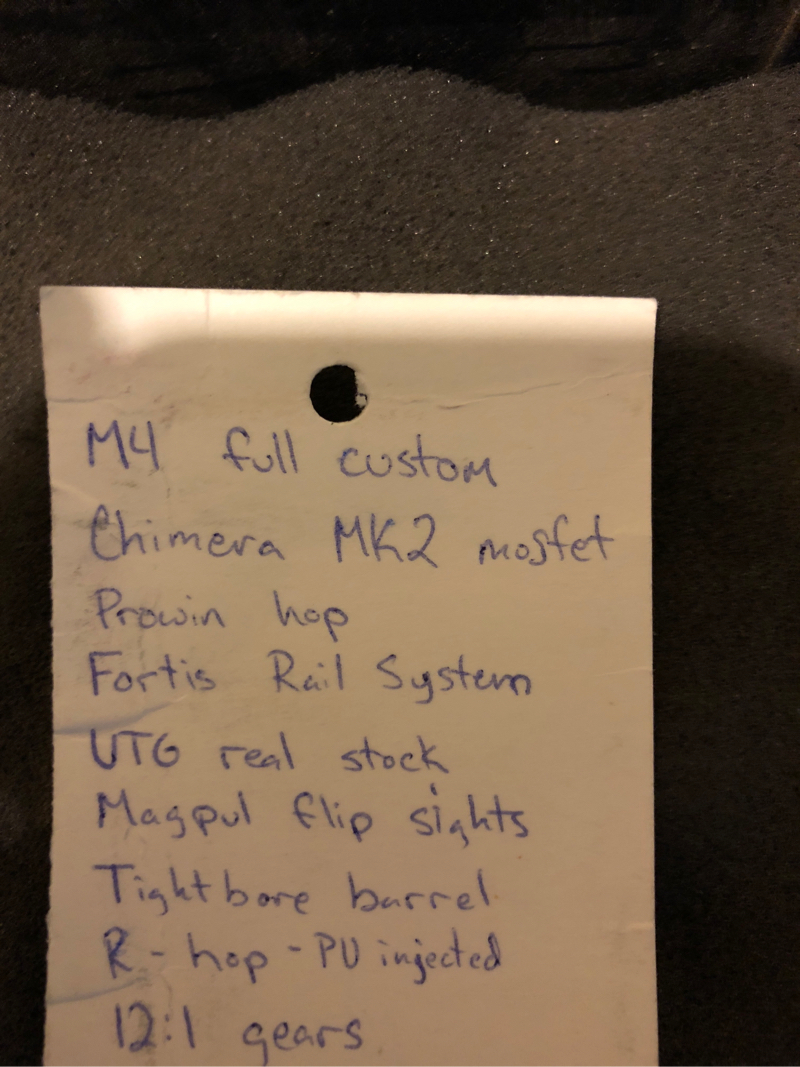 M4 full custom
Chimera MK2 mosfet
Prowin hop
Fortis Rail System
UTG real stock
Magpul flip sights
Tightbore barrel
R-hop - PU injected
12:1 gears